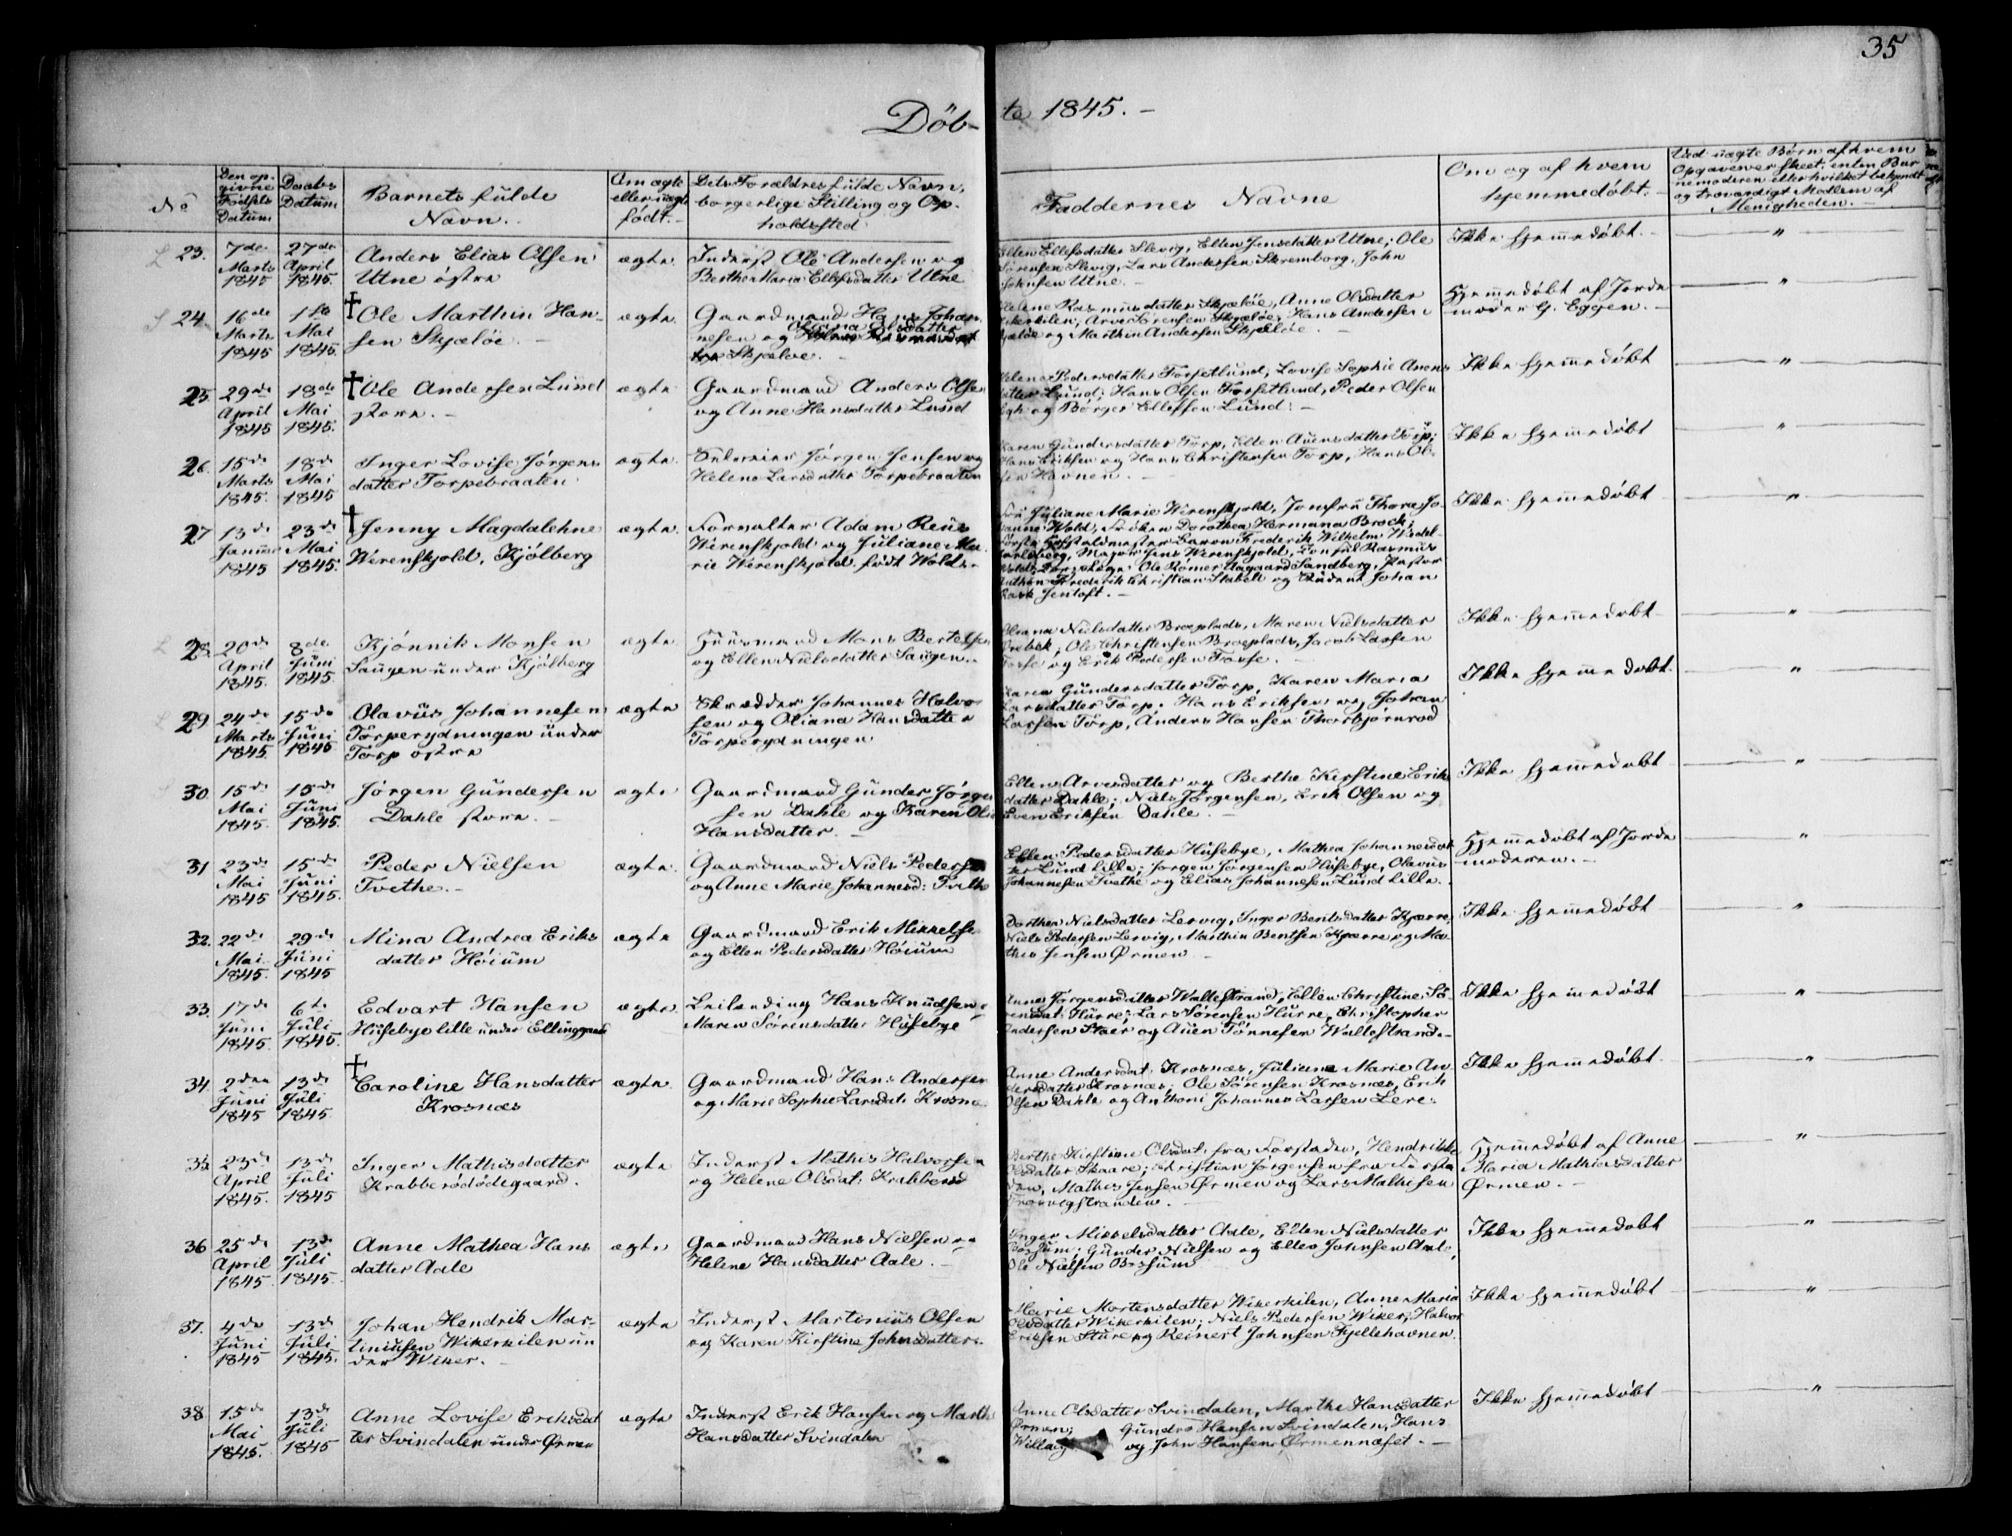 35
Döbte 1845. –
No
Den op-
givne
Fødsels
Datum
Daabs
Datum
Barnets fulde
Navn.
Om ægte
eller uægte
født. –
Dets Forældres fulde Navn,
borgerlige Stilling og Op-
holdssted.
Faddernes Navne
Om og af hvem
hjemmedøbt. –
Ved uægte Børn af hvem
Opgaven er skeet, enten Bar-
nemoderen eller hvilket bekjendt
og troværdigt Medlem af
Menigheden. –
23.
7de
Marts
1845
27de
April
1845.
Anders Elias Olsen
Utne østre
ægte
Inderst Ole Andersen og
Berthe Maria Ellefsdatter Utne
Ellen Ellefsdatter Slevig, Ellen Jensdatter Utne; Ole
Sørensen Slevig, Lars Andersen Skremborg, John
Johnsen Utne. –
Ikke hjemmedøbt. –
"
24.
16de
Marts
1845
1ste
Mai
1845.
† Ole Marthin Han-
sen Skjæløe. –
ægte.
Gaardmand Hans Johan-
nesen og Olsdatter
Skjæloe. –
Rasmusdatter Skjæløe, Anne Olsdatter
Arve Sørensen Skjæløe, Hans Andersen
Skjæløe og Marthin Andersen Skjæløe. –
Hjemmedøbt af Jorde
moder G. Eggen. –
"
25.
29de
April
1845
18de
Mai
1845.
† Ole Andersen Lund
store. –
ægte
Gaardmand Anders Olsen
og Anne Hansdatter Lund
Helene Pedersdatter Torsetlund, Lovise Sophie Arens
datter Lund; Hans Olsen Torsetlund, Peder Olsen
og Børger Ellefsen Lund. –
Ikke hjemmedøbt
"
26.
15de
Marts
1845.
18de
Mai
1845
Inger Lovise Jørgens
datter Torpebraaten
ægte.
Jørgen Jensen og
Helene Larsdatter Torpebraaten
Karen Gundersdatter Torp, Ellen Auensdatter Torp;
Hans Eriksen og Hans Christensen Torp, Hans Ol-
sen Havnen. –
Ikke hjemmedøbt
"
27
13de
Januar
1845
23de
Mai
1845.
† Jenny Magdalehne
Werenskjold, Kjølberg
ægte.
Forvalter Adam Reus
Werenskjold og Juliane Ma-
rie Werenskjold født Wold. –
Fru Juliane Marie Werenskjold, Jomfru Thora Jo-
hanne Wold, Frøken Dorothea Hermana Brock;
Hofstaldmester Baron Frederik Wilhelm Wedel-
Jarlsberg, Major Jens Werenskjold, Rasmus
Wold, Ole Rømer Aagaard Sandberg, Pastor
Frederik Christian Stabell og Student Johan
Jentoft. –
Ikke hjemmedøbt
"
28
20de
April
1845.
8de
Juni
1845.
Kjønnik Monsen
Saugen under Kjølberg
ægte.
Huusmand Mons Bertelsen
og Ellen Nielsdatter Saugen. –
Nielsdatter Broeplads, Maren Nielsdatter
Ørebek; Ole Christensen Broeplads, Jacob Larsen
Torse og Erik Pedersen Torse. –
Ikke hjemmedøbt
"
29
24de
Marts
1845.
15de
Juni
1845
Olavus Johannesen
Torperydningen under
Torp østre
ægte
Skrædder Johannes Halvor-
sen og Oliana Hansdatter
Torperydningen
Karen Gundersdatter Torp, Karen Maria
Larsdatter Torp; Hans Eriksen og Johan
Larsen Torp, Anders Hansen Thorbjørnrød
Ikke hjemmedøbt.
"
30
15de
Mai
1845.
15de
Juni
1845.
Jørgen Gundersen
Dahle store. –
ægte
Gaardmand Gunder Jørgen
sen Dahle og Karen Olia
Hansdatter. –
Ellen Arvesdatter og Berthe Kirstine Eriks
datter Dahle; Niels Jørgensen, Erik Olsen og
Even Eriksen Dahle. –
Ikke hjemmedøbt
"
31
23de
Mai
1845
15de
Juni
1845.
Peder Nielsen
Tvethe. –
ægte.
Gaardmand Niels Pedersen
og Anne Marie Johannesd: Tvethe
Ellen Pedersdatter Husebye, Mathea Johannesdat
ter Lund lille; Jørgen Jørgensen Husebye, Olavus
Johannesen Tvethe og Elias Johannesen Lund lille. –
Hjemmedøbt af Jorde
moderen. –
"
32.
22de
Mai
1845.
29de
Juni
1845
Mina Andrea Eriks
datter Høium
ægte
Gaardmand Erik Mikkelsen
og Ellen Pedersdatter Høium
Dorthea Nielsdatter Lervig, Inger Bentsdatter Kjærre;
Niels Pedersen Lervig, Marthin Bentsen Kjærre og Ma-
this Jensen Ørmen. –
Ikke hjemmedøbt
"
33.
17de
Juni
1845.
6te
Juli
1845.
Edvart Hansen
Husebye lille under Ellinggaard
ægte.
Leilænding Hans Knudsen
Maren Sørensdatter Husebye
Anne Jørgensdatter Wallestrand, Ellen Christine Sø-
rensdat: Hurre; Lars Sørensen Hurre, Christopher
Andersen Staer og Auen Tønnesen Wallestrand. –
Ikke hjemmedøbt
"
34
2den
Juni
1845
13de
Juli
1845
† Caroline Hansdatter
Krosnæs
ægte.
Gaardmand Hans Andersen
og Marie Sophie Larsdat: Krosnæs
Anne Andersdat: Krosnæs, Juliane Marie An-
dersdatter Krosnæs; Ole Sørensen Krosnæs, Erik
Olsen Dahle og Anthoni Johannes Larsen Lere. –
Ikke hjemmedøbt
"
35.
23de
April
1845.
13de
Juli
1845
Inger Mathisdatter
Krabberødødegaard.
ægte
Inderst Mathis Halvorsen
og Helene Olsdat: Krabberød
Berthe Kirstine Olsdat: fra Forstaden, Hendrikke
Olsdatter Skaare; Christian Jørgensen fra Forsta
den, Mathis Jensen Ørmen og Lars Mathisen
Trosvigstranden. –
Hjemmedøbt af Anne
Maria Mathiasdatter
Ørmen. –
"
36
25de
April
1845.
13de
Juli
1845.
Anne Mathea Hans
datter Aale
ægte
Gaardmand Hans Nielsen og
Helene Hansdatter Aale. –
Inger Mikkelsdatter Aale, Ellen Nielsdatter
Bossum; Gunder Nielsen og Ellev Johnsen Aale,
Ole Nielsen Bossum
Ikke hjemmedøbt
"
37.
4de
Juni
1845
13de
Juli
1845.
Johan Hendrik Mar-
tiniusen Wikerkilen un
der Wiker. –
ægte
Inderst Martinius Olsen
og Karen Kirstine Johnsdatter. –
Marie Mortensdatter Wikerkilen, Anne Maria
Olsdatter Wikerkilen; Niels Pedersen Wiker, Halvor
Eriksen Sture og Reinert Johnsen Fjellehavnen.
Ikke hjemmedøbt
"
38
15de
Mai
1845.
13de
Juli
1845
Anne Lovise Eriksdat
ter Svindalen under Ørmen
ægte
Inderst Erik Hansen og Marthe
Hansdatter Svindalen
Anne Olsdatter Svindalen, Marthe Hansdatter
Ørmen; Gunder Hansen Svindalen, Hans
og John Hansen Ørmennæset. –
Ikke hjemmedøbt
"